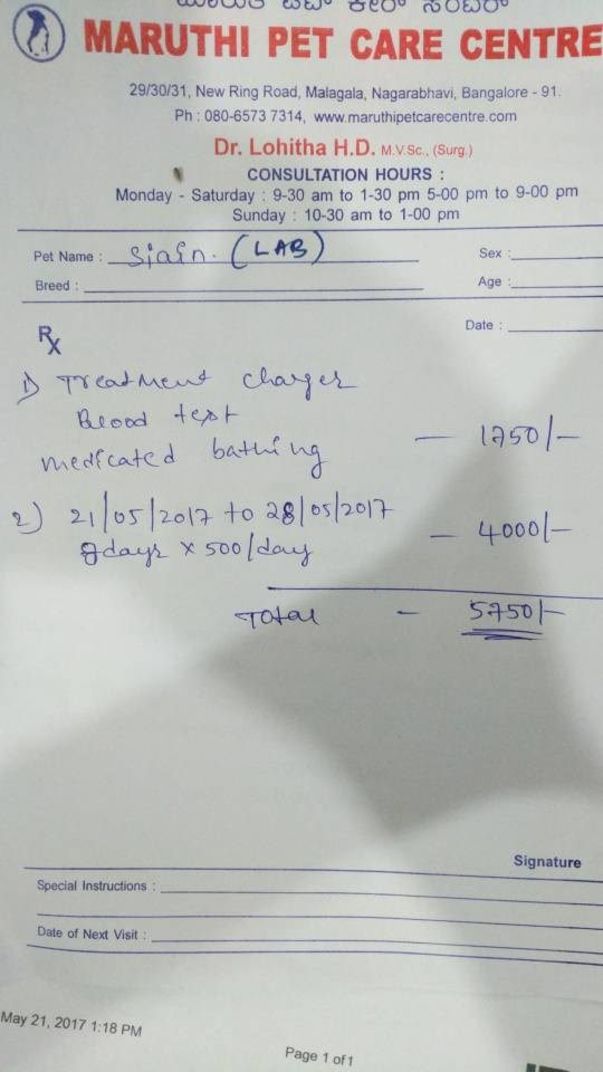 ಮಾರುತಿ ಪೆಟ್ ಕೇರ್ ಸೆಂಟರ್
MARUTHI PET CARE CENTRE
29/30/31, New Ring Road, Malagala, Nagarabhavi, Bangalore - 91.
Ph : 080-6573 7314, www.maruthipetcarecentre.com
Dr. Lohitha H.D. M.V.Sc., (Surg.)
CONSULTATION HOURS :
Monday - Saturday : 9-30 am to 1-30 pm 5-00 pm to 9-00 pm
Sunday : 10-30 am to 1-00 pm
Pet Name : (LAB) Sex :
Breed : Age :
Date :
Rx
1) Treatment charges
Blood test
medicated bathing — 1750/-
2) 21/05/2017 to 28/05/2017
8days x 500/day — 4000/-
Total — 5750/-
Signature
Special Instructions :
Date of Next Visit :
May 21, 2017 1:18 PM
Page 1 of 1